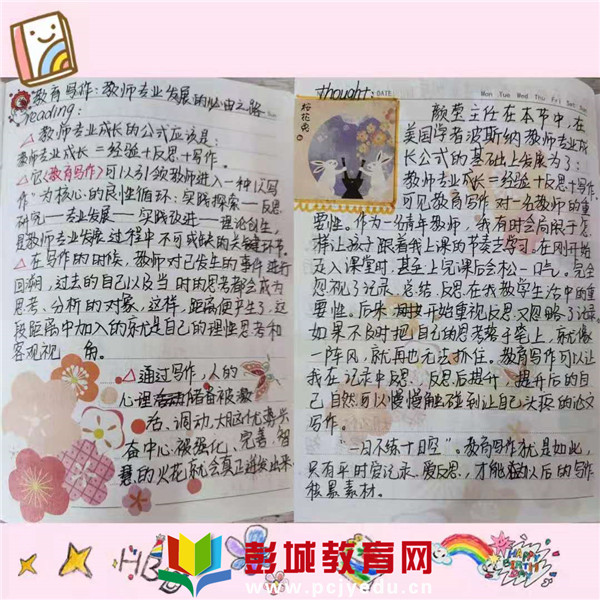 教育写作：教师专业发展的必由之路
reading：
△教师专业成长的公式应该是：
教师专业成长＝经验＋反思＋写作。
△它（教育写作）可以引领教师进入一种以“写
作”为核心的良性循环：实践探索—反思
研究—专业发展—实践改进—理论创生，
是教师专业发展过程中不可或缺的关键环节。
△在写作的时候，教师对已发生的事件进行
回溯，过去的自己以及当时的思考都会成为
思考、分析的对象，这样，距离便产生了，这
段距离中加入的就是自己的理性思考和
客观视 角。
△通过写作，人的
心理 储备被激
活、调动，大脑优势兴
奋中心被强化、完善，智
慧的火花就会真正迸发出来
thought：
DATE:
Mon Tue Wed Thu Fri Sat Sun
桜花兎
颜莹主任在本节中，在
美国学者波斯纳教师专业成
长公式的基础上发展为了：
教师专业成长＝经验＋反思＋写作
可见教育写作对一名教师的重
要性。作为一名青年教师，我有时会局限于怎
样让孩子跟着我上课的节奏去学习。在刚开始
走入课堂时，甚至上完课后会松一口气。完全
忽视了记录、总结、反思在我教学生活中的重
要性。后来 开始重视反思，又忽略了记录。
如果不及时把自己的思考落于笔上，就像
一阵风，就再也无法抓住。教育写作可以让
我在记录中反思，反思后提升，提升后的自
己自然可以慢慢触碰到让自己头疼的论文
写作。
“一日不练十日空”。教育写作就是如此，
只有平时爱记录、爱反思，才能 以后的写作
积累素材。
HB
HAPPY BIRTHDAY
彭城教育网
www.pcjyedu.cn